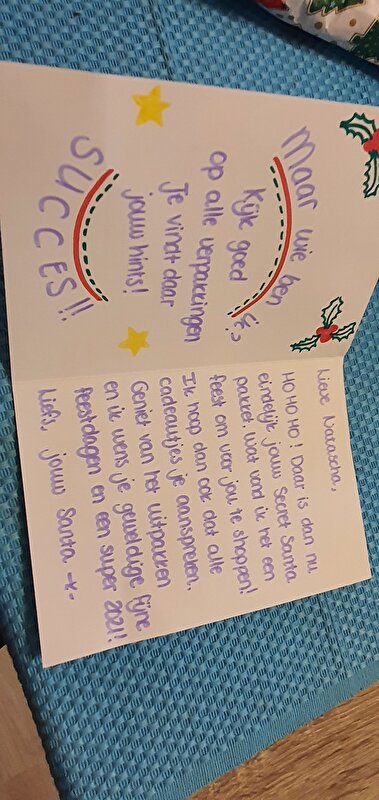 Maar wie ben
ik?
Kijk goed
op alle verpakkingen
Je vindt daar
jouw hints!
SUCCES!!
Lieve Natascha,
HO HO HO! Daar is dan nu
eindelijk jouw Secret Santa
pakket. Wat vond ik het een
feest om voor jou te shoppen!
Ik hoop dan ook dat alle
cadeautjes je aanspreken.
Geniet van het uitpakken
en ik wens je geweldige fijne
feestdagen en een super 2021!
Liefs, jouw Santa -x-